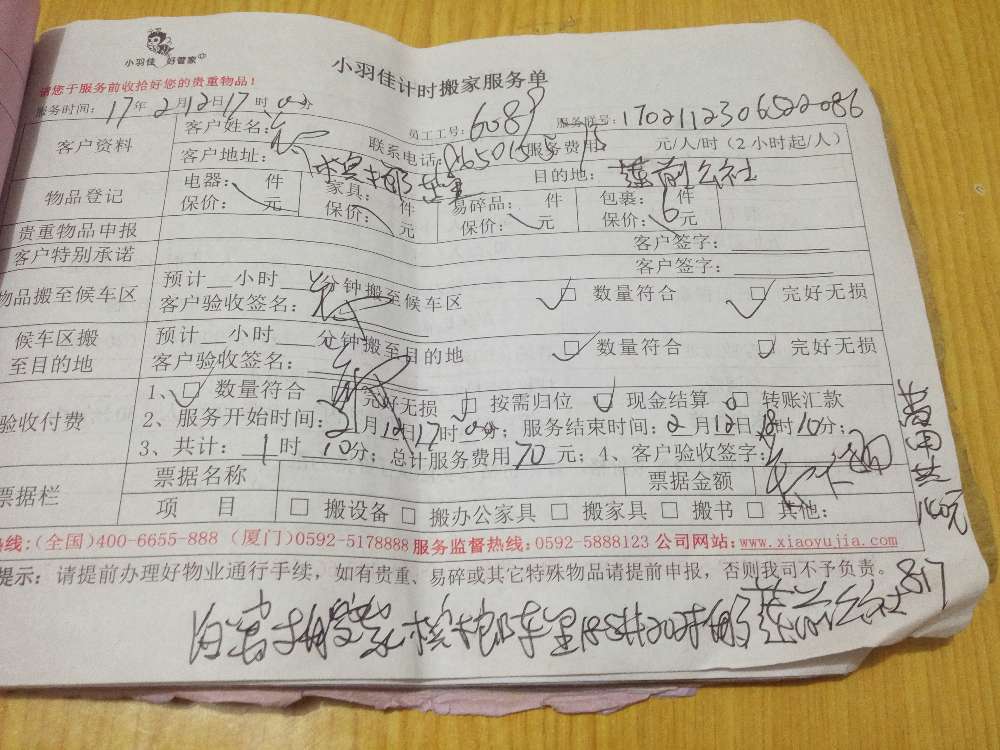 小羽佳 好管家
小羽佳计时搬家服务单
请您于服务前收拾好您的贵重物品！
服务时间：17年2月12日17时00分 员工工号：6089 服务账号：170211230652286
客户资料 客户姓名： 联系电话： 服务费用 元/人/时（2小时起/人）
客户地址：槟榔东里 目的地：莲前公社
物品登记 电器： 件 家具： 件 易碎品： 件 包裹：6件
保价： 元 保价： 元 保价： 元 保价： 元
贵重物品申报 客户签字：
客户特别承诺 客户签字：
物品搬至候车区 预计__小时__分钟搬至候车区 □ 数量符合 □ 完好无损
客户验收签名：
候车区搬至目的地 预计__小时__分钟搬至目的地 □ 数量符合 □ 完好无损
客户验收签名：
验收付费 1、□ 数量符合 □ 完好无损 □ 按需归位 □ 现金结算 □ 转账汇款
2、服务开始时间：2月12日17时00分；服务结束时间：2月12日18时10分；
3、共计：1时10分；总计服务费用70元；4、客户验收签字：
票据栏 票据名称 票据金额
项 目 □ 搬设备 □ 搬办公家具 □ 搬家具 □ 搬书 □ 其他：
费用共140元
热线：(全国)400-6655-888 (厦门)0592-5178888 服务监督热线：0592-5888123 公司网站：www.xiaoyujia.com
提示：请提前办理好物业通行手续，如有贵重、易碎或其它特殊物品请提前申报，否则我司不予负责。
槟榔东里 莲前公社 817